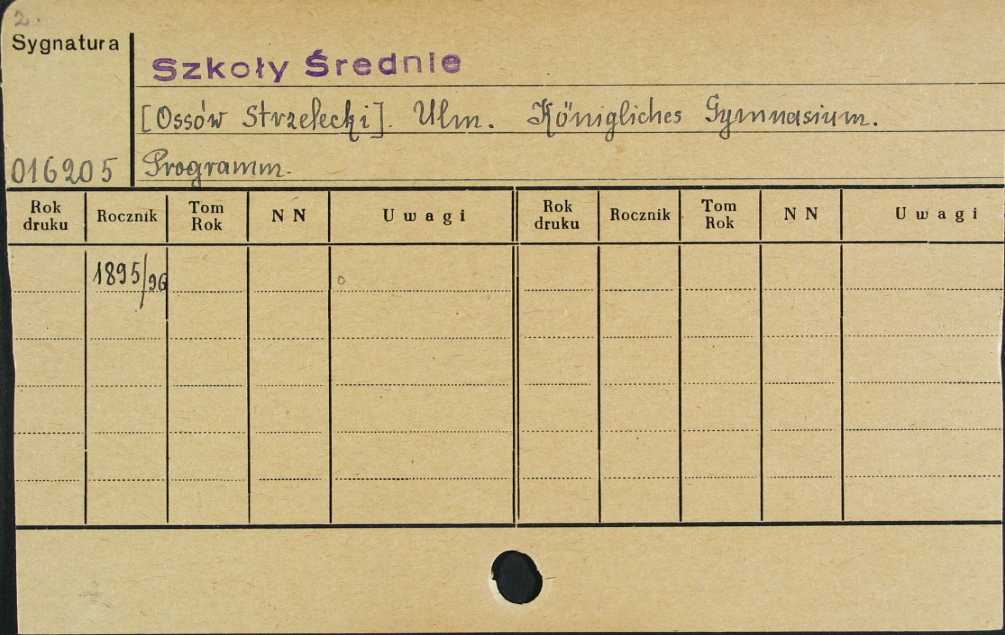 2.
Sygnatura
Szkoły Średnie
[Ossów Strzelecki]. Ulm. Königliches Gymnasium.
016205 Programm.
Rok druku Rocznik Tom Rok N N Uwagi Rok druku Rocznik Tom Rok N N Uwagi
1895/96